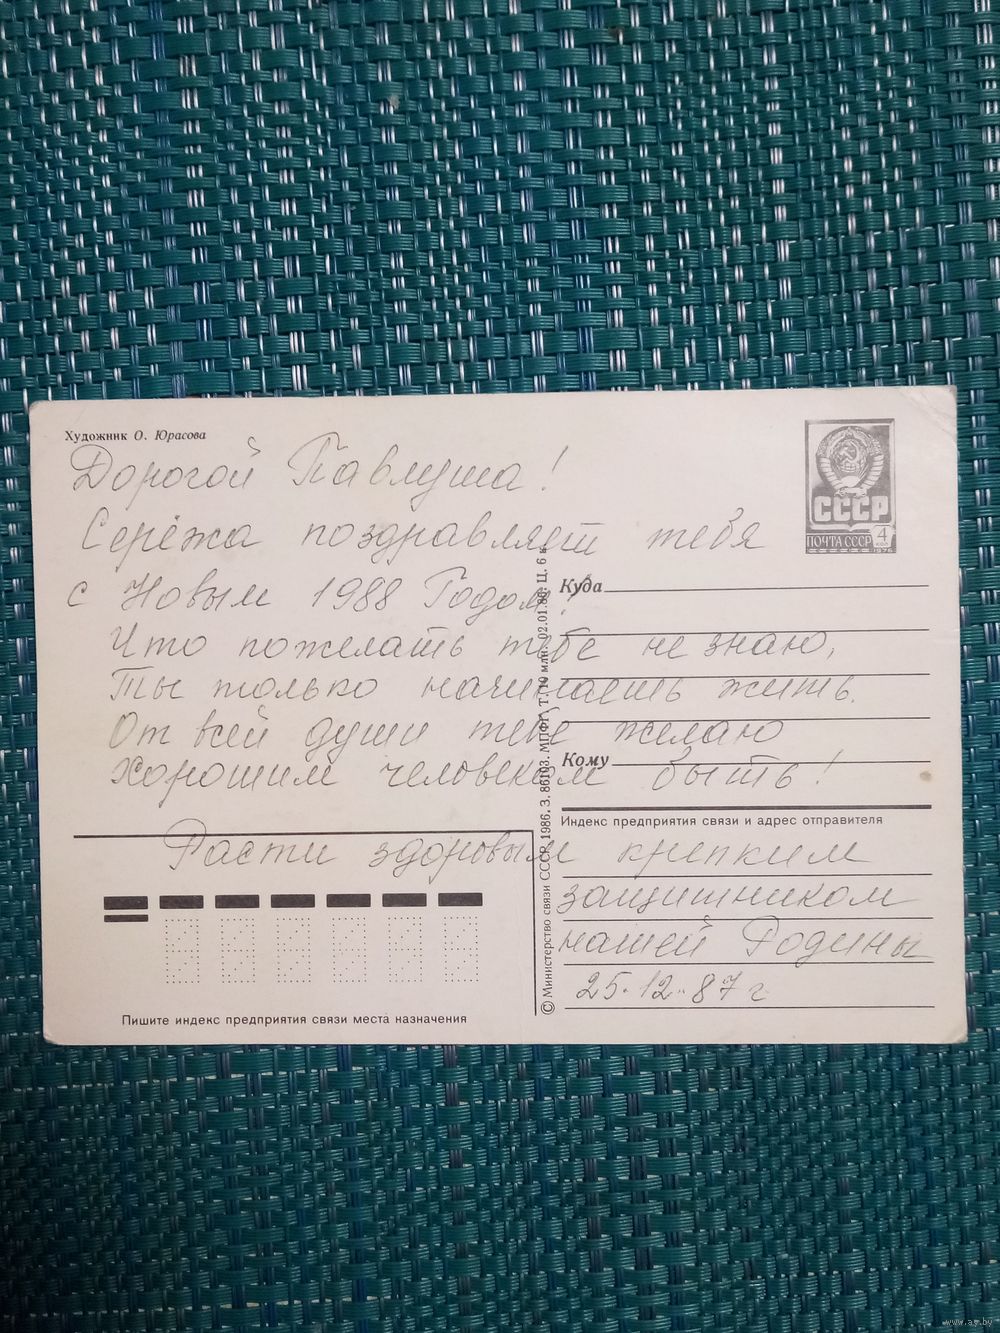 Художник О. Юрасова
СССР
ПОЧТА СССР
4
КОП
1976
Дорогой Павлуша!
Серёжа поздравляет тебя
с Новым 1988 Годом!
Что пожелать тебе не знаю,
Ты только начинаешь жить.
От всей души тебе желаю
хорошим человеком быть!
Расти здоровым крепким
защитником
нашей Родины
25.12.87 г
Куда
Кому
Индекс предприятия связи и адрес отправителя
© Министерство связи СССР, 1986. З. 86103. МПФГ. Т. 10 млн. 02.01.86. Ц. 6 к.
Пишите индекс предприятия связи места назначения
www.ay.by